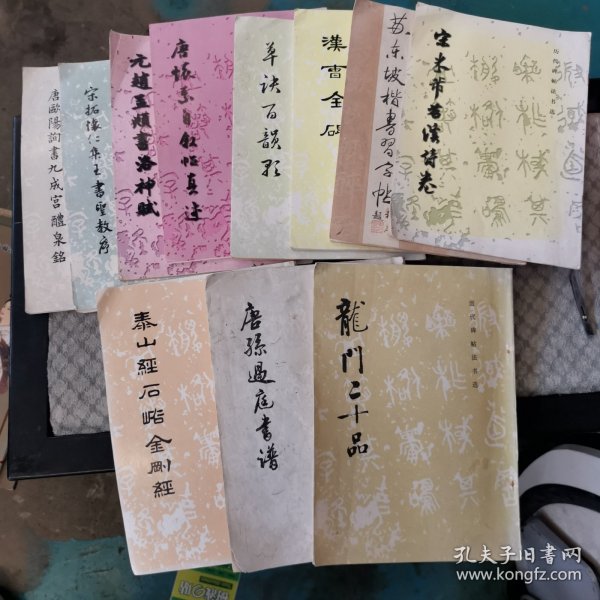 唐歐陽詢書九成宮醴泉銘
宋拓懷仁集王書聖教序
元趙孟頫書洛神賦
唐懷素自敘帖真迹
草訣百韻歌
漢曹全碑
苏东坡楷書習字帖
宋米芾苕溪詩卷
历代碑帖法书选
泰山經石峪金剛經
唐孫過庭書谱
龍門二十品
历代碑帖法书选
孔夫子旧書网
www.kongfz.com